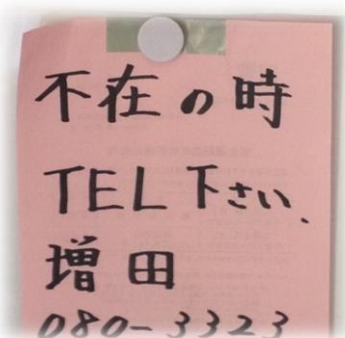 不在の時
TEL下さい、
増田
080-3323